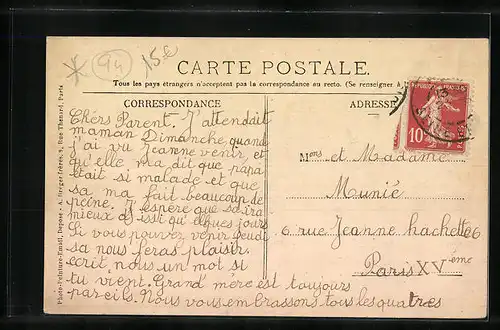 94
15e
CARTE POSTALE.
Tous les pays étrangers n'acceptent pas la correspondance au recto. (Se renseigner à
CORRESPONDANCE
ADRESSE
10
Chers Parent. J'attendait
maman Dimanche quand
j'ai vu Jeanne venir, et
qu'elle ma dit que papa
était si malade et que
sa ma fait beaucoup de
peine. J'espère que sa ira
mieux di issit qu'elques jours
Si vous pouvez venir jeudi
sa nous feras plaisir.
ecrit nous un mot si
tu vient. Grand mère est toujours
pareils. Nous vous embrassons tous les quatres
Mons et Madame
Munié
6 rue Jeanne hachette 6
Paris XVème
Photo-Peinture-Email, Déposé - A. Berger frères, 9, Rue Thénard, Paris